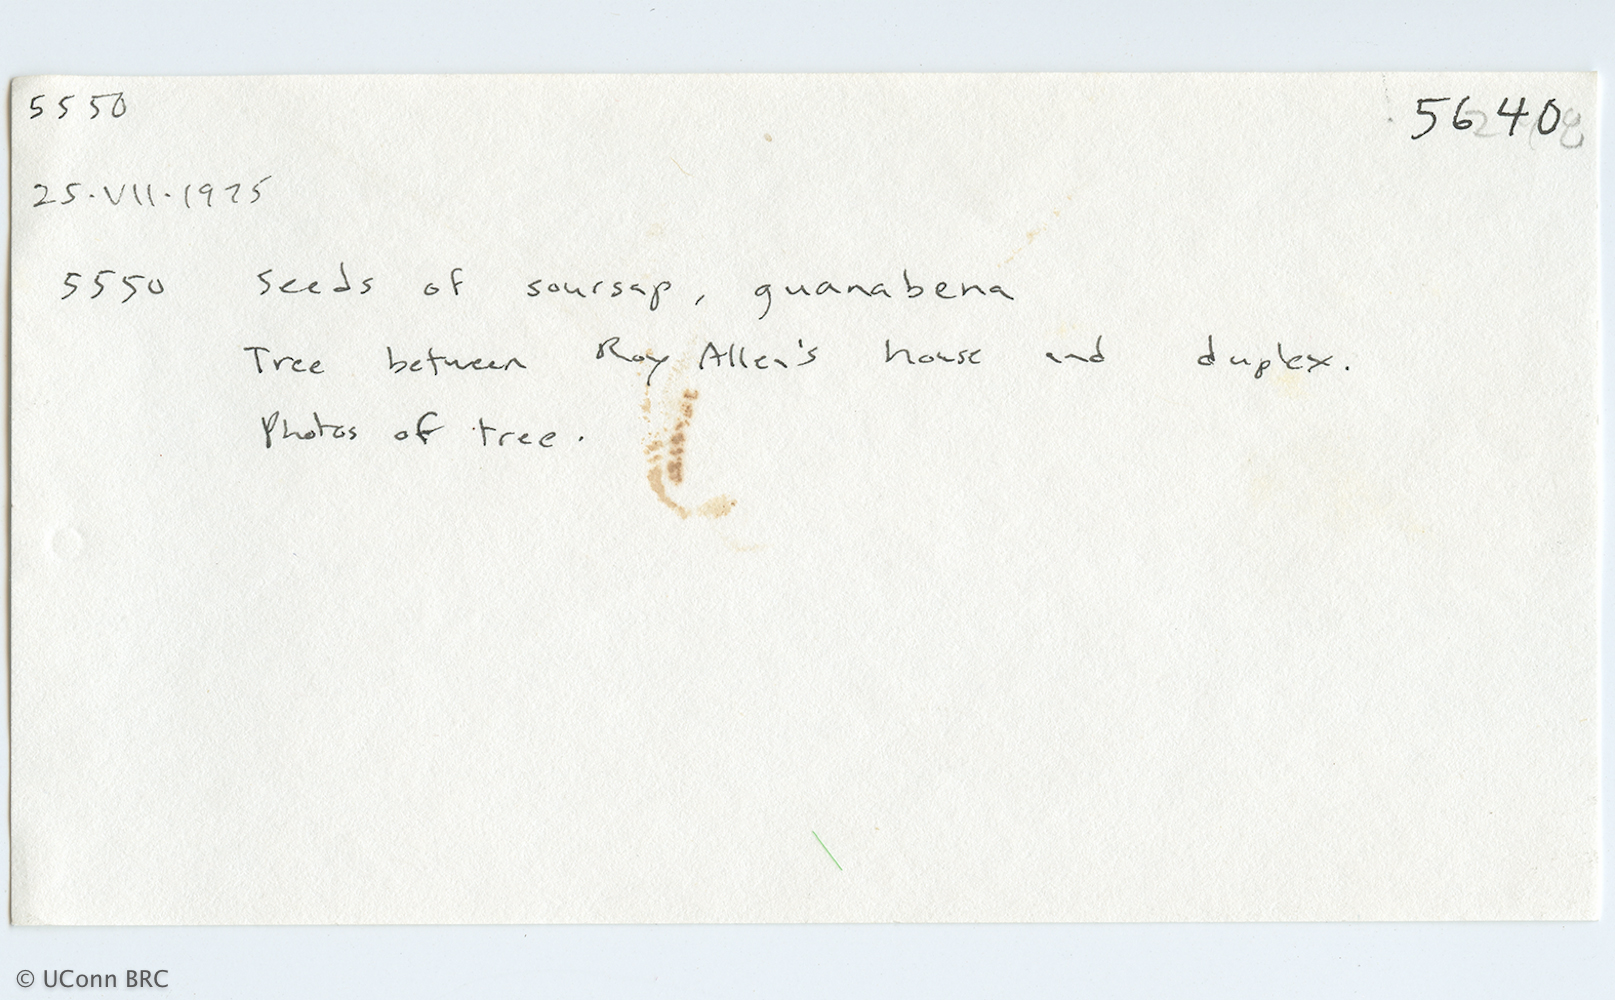 5550
5640
25.VII.1975
5550 Seeds of soursap, guanabena
Tree between Roy Allen's house and duplex.
Photos of tree.
© UConn BRC